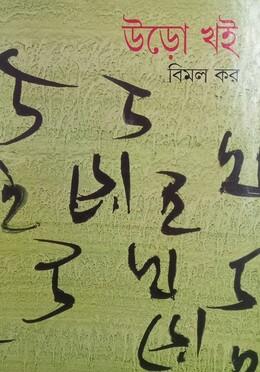 উড়ো খই
বিমল কর
উ ড
ই ড়ো ই খ
উ খ ড
ড়ো